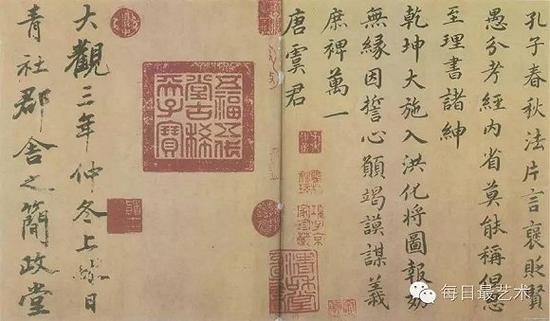 孔子春秋法片言褒貶賢
愚分考經內省莫能稱
至理書諸紳
乾坤大施入洪化將圖報效
無緣因誓心願竭謨謀義
庶裨萬一
唐虞君
五福五代
堂古稀
天子寶
大觀三年仲冬上澣日
青社郡舍之簡政堂
每日最艺术